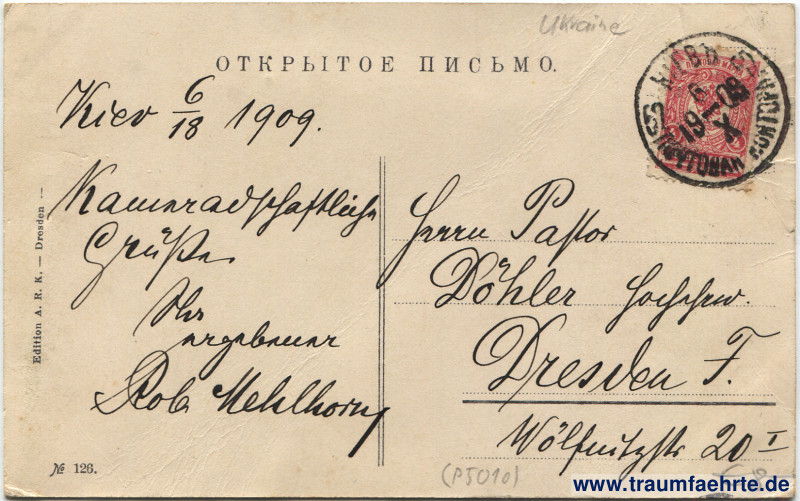 Ukraine
ОТКРЫТОЕ ПИСЬМО.
Kiev 6/18 1909.
Kameradschaftliche
Grüße
Ihr
ergebener
Rob. Mehlhorn
Herrn Pastor
Döhler Hochehrw.
Dresden F.
Wölfnitzstr 20 I
КІЕВЪ
6
19 09
X
Edition A. R. K. — Dresden
№ 126.
(P5010)
www.traumfaehrte.de